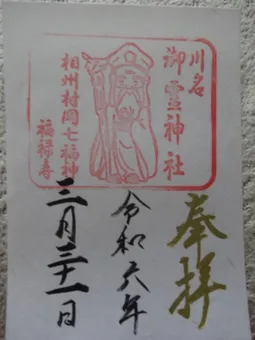 川名
御霊神社
相州村岡七福神
福禄寿
奉拝
令和六年
三月三十一日